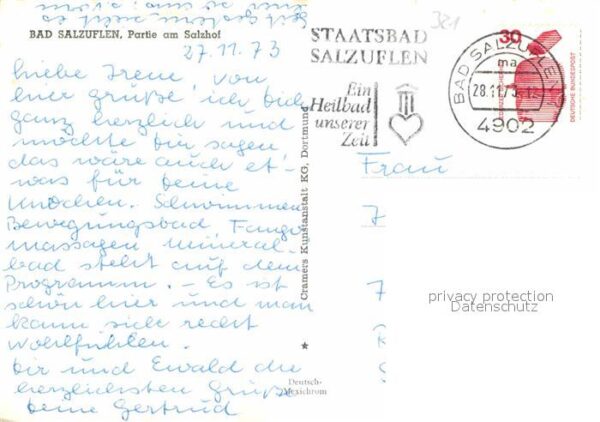 BAD SALZUFLEN, Partie am Salzhof
27.11.73
liebe Irene, von
hier grüße ich dich
ganz herzlich und
möchte dir sagen
das wäre auch et-
was für deine
Knochen. Schwimmen
Bewegungsbad, Fango
massagen mineral-
bad steht auf dem
Programm. - Es ist
schön hier und man
kann sich recht
wohlfühlen.
dir und Ewald die
herzlichsten Grüße
deine Gertrud
Cramers Kunstanstalt KG, Dortmund
Deutsch-
Mexichrom
STAATSBAD
SALZUFLEN
Ein
Heilbad
unserer
Zeit
321
30
DEUTSCHE BUNDESPOST
BAD SALZUFLEN
ma
28.11.73
4902
Frau
7
7
privacy protection
Datenschutz